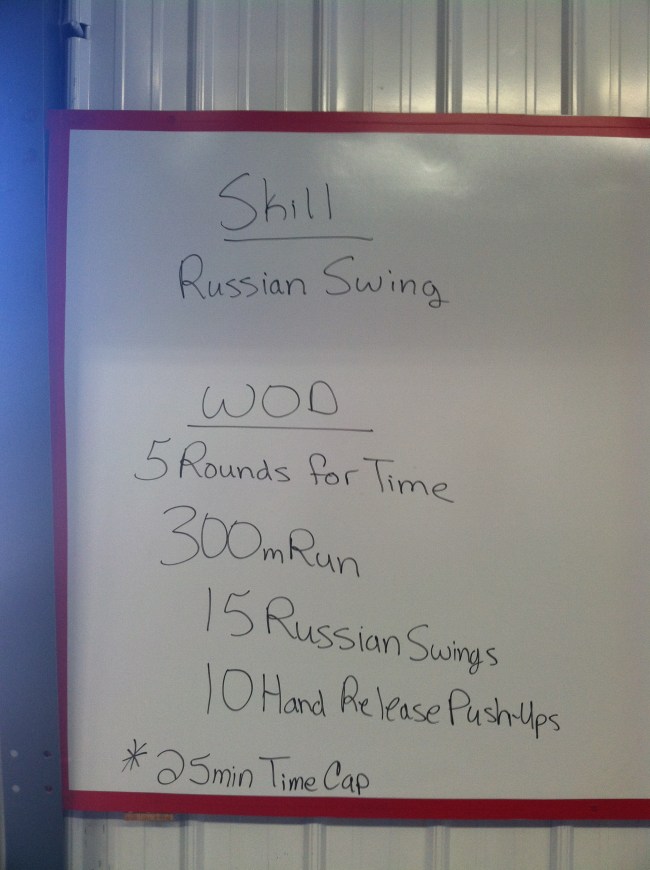 Skill
Russian Swing
WOD
5 Rounds for Time
300m Run
15 Russian Swings
10 Hand Release Push-Ups
* 25min Time Cap